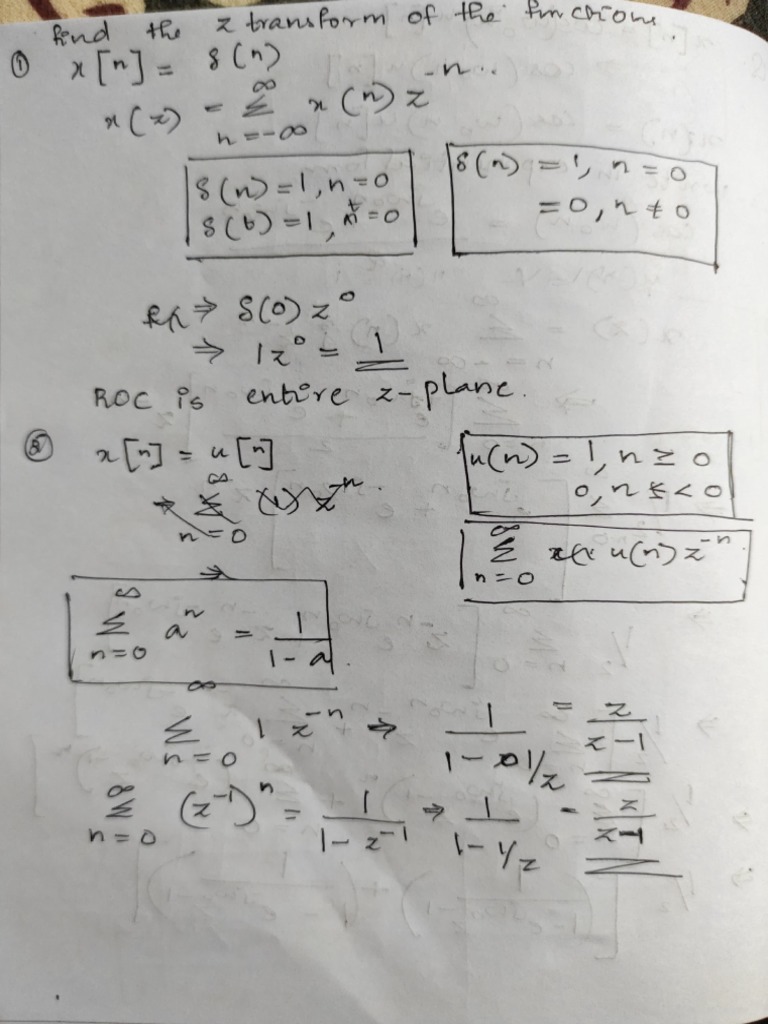 find the z transform of the functions.
① x[n] = δ(n)
x(z) = ∑_{n=-∞}^{∞} x(n) z^{-n}..
δ(n) = 1, n = 0
δ(t) = 1, t = 0
δ(n) = 1, n = 0
= 0, n ≠ 0
⇒ δ(0) z^0
⇒ 1z^0 = 1
ROC is entire z-plane.
② x[n] = u[n]
u(n) = 1, n ≥ 0
0, n < 0
∑_{n=0}^{∞} (1) z^{-n}.
∑_{n=0}^{∞} u(n) z^{-n}
→
∑_{n=0}^{∞} a^n = 1/(1-a).
∑_{n=0}^{∞} 1 z^{-n} ⇒ 1/(1-1/z) = z/(z-1)
∑_{n=0}^{∞} (z^{-1})^n = 1/(1-z^{-1}) ⇒ 1/(1-1/z) = z/(z-1)